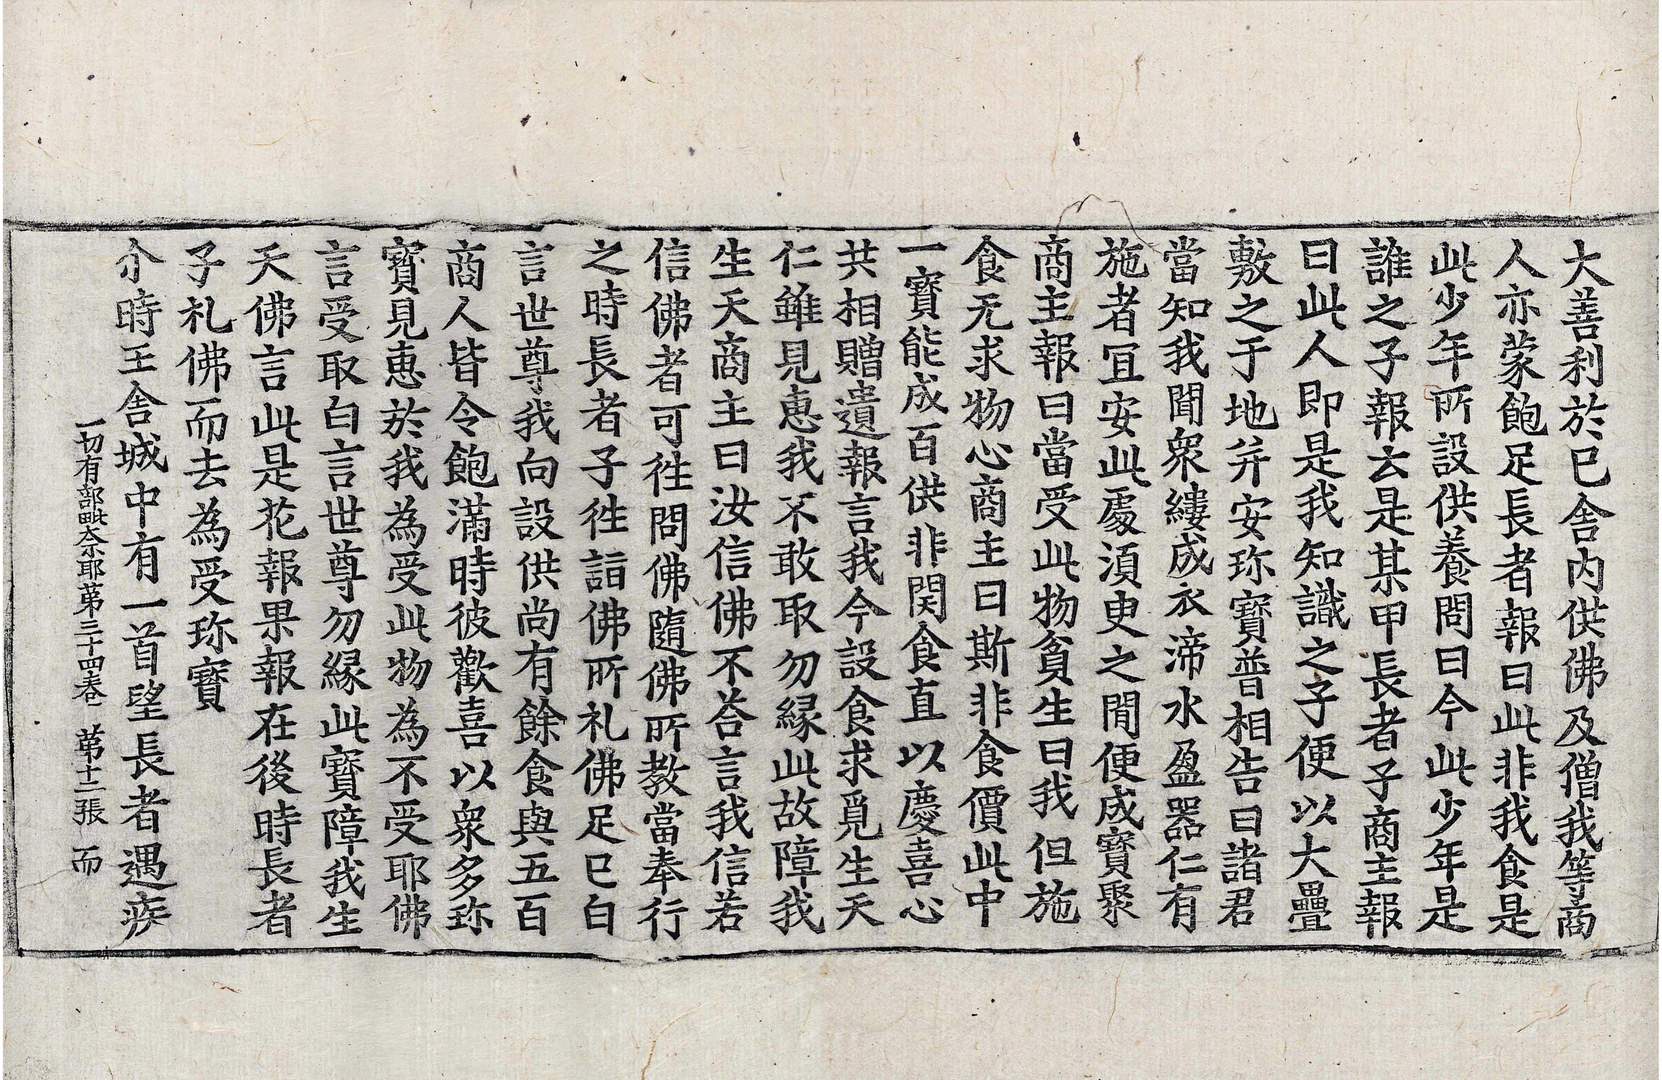 大善利於己舍内供佛及僧我等商
人亦蒙飽足長者報曰此非我食是
此少年所設供養問曰今此少年是
誰之子報云是某甲長者子商主報
曰此人即是我知識之子便以大疊
敷之于地并安珎寶普相告曰諸君
當知我聞衆縷成衣渧水盈器仁有
施者冝安此處湏臾之閒便成寶聚
商主報曰當受此物貧生曰我但施
食无求物心商主曰斯非食價此中
一寶能成百供非関食直以慶喜心
共相贈遺報言我今設食求覓生天
仁雖見惠我不敢取勿縁此故障我
生天商主曰汝信佛不荅言我信若
信佛者可徃問佛隨佛所教當奉行
之時長者子徃詣佛所礼佛足已白
言世尊我向設供尚有餘食與五百
商人皆令飽滿時彼歡喜以衆多珎
寶見惠於我為受此物為不受耶佛
言受取白言世尊勿縁此寶障我生
天佛言此是花報果報在後時長者
子礼佛而去為受珎寶
尒時王舍城中有一首望長者遇疾
一切有部毗奈耶苐三十四卷 苐十二張 而